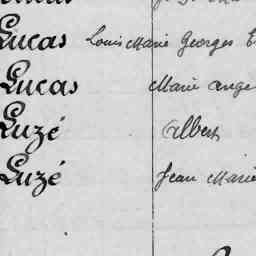 Lucas Louis Marie Georges
Lucas Marie Ange
Luzé Albert
Luzé Jean Marie